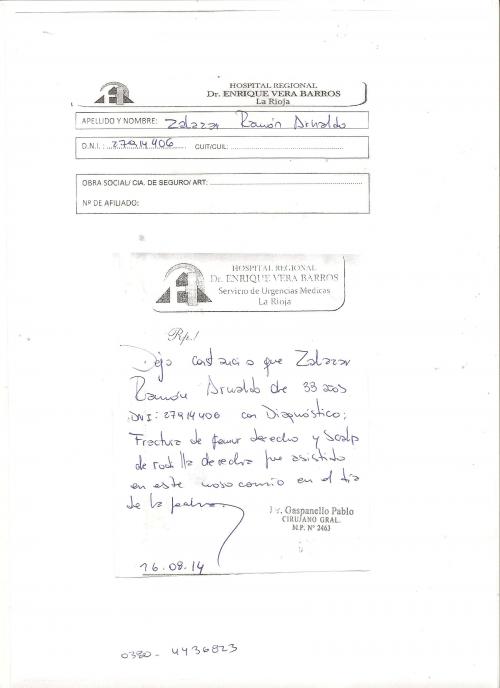 HOSPITAL REGIONAL
Dr. ENRIQUE VERA BARROS
La Rioja
APELLIDO Y NOMBRE: Zalazar Ramón Arnaldo
D.N.I.: 27914406 CUIT/CUIL:
OBRA SOCIAL/ CIA. DE SEGURO/ ART:
Nº DE AFILIADO:
HOSPITAL REGIONAL
Dr. ENRIQUE VERA BARROS
Servicio de Urgencias Medicas
La Rioja
Rp./
Dejo constancia que Zalazar
Ramón Arnaldo de 33 años
DNI: 27914406 con Diagnóstico;
Fractura de femur derecho y Scalp
de rodilla derecha fue asistido
en este nosocomio en el dia
de la fecha.
Dr. Gaspanello Pablo
CIRUJANO GRAL.
M.P. Nº 2463
16.08.14
0380 - 4436823